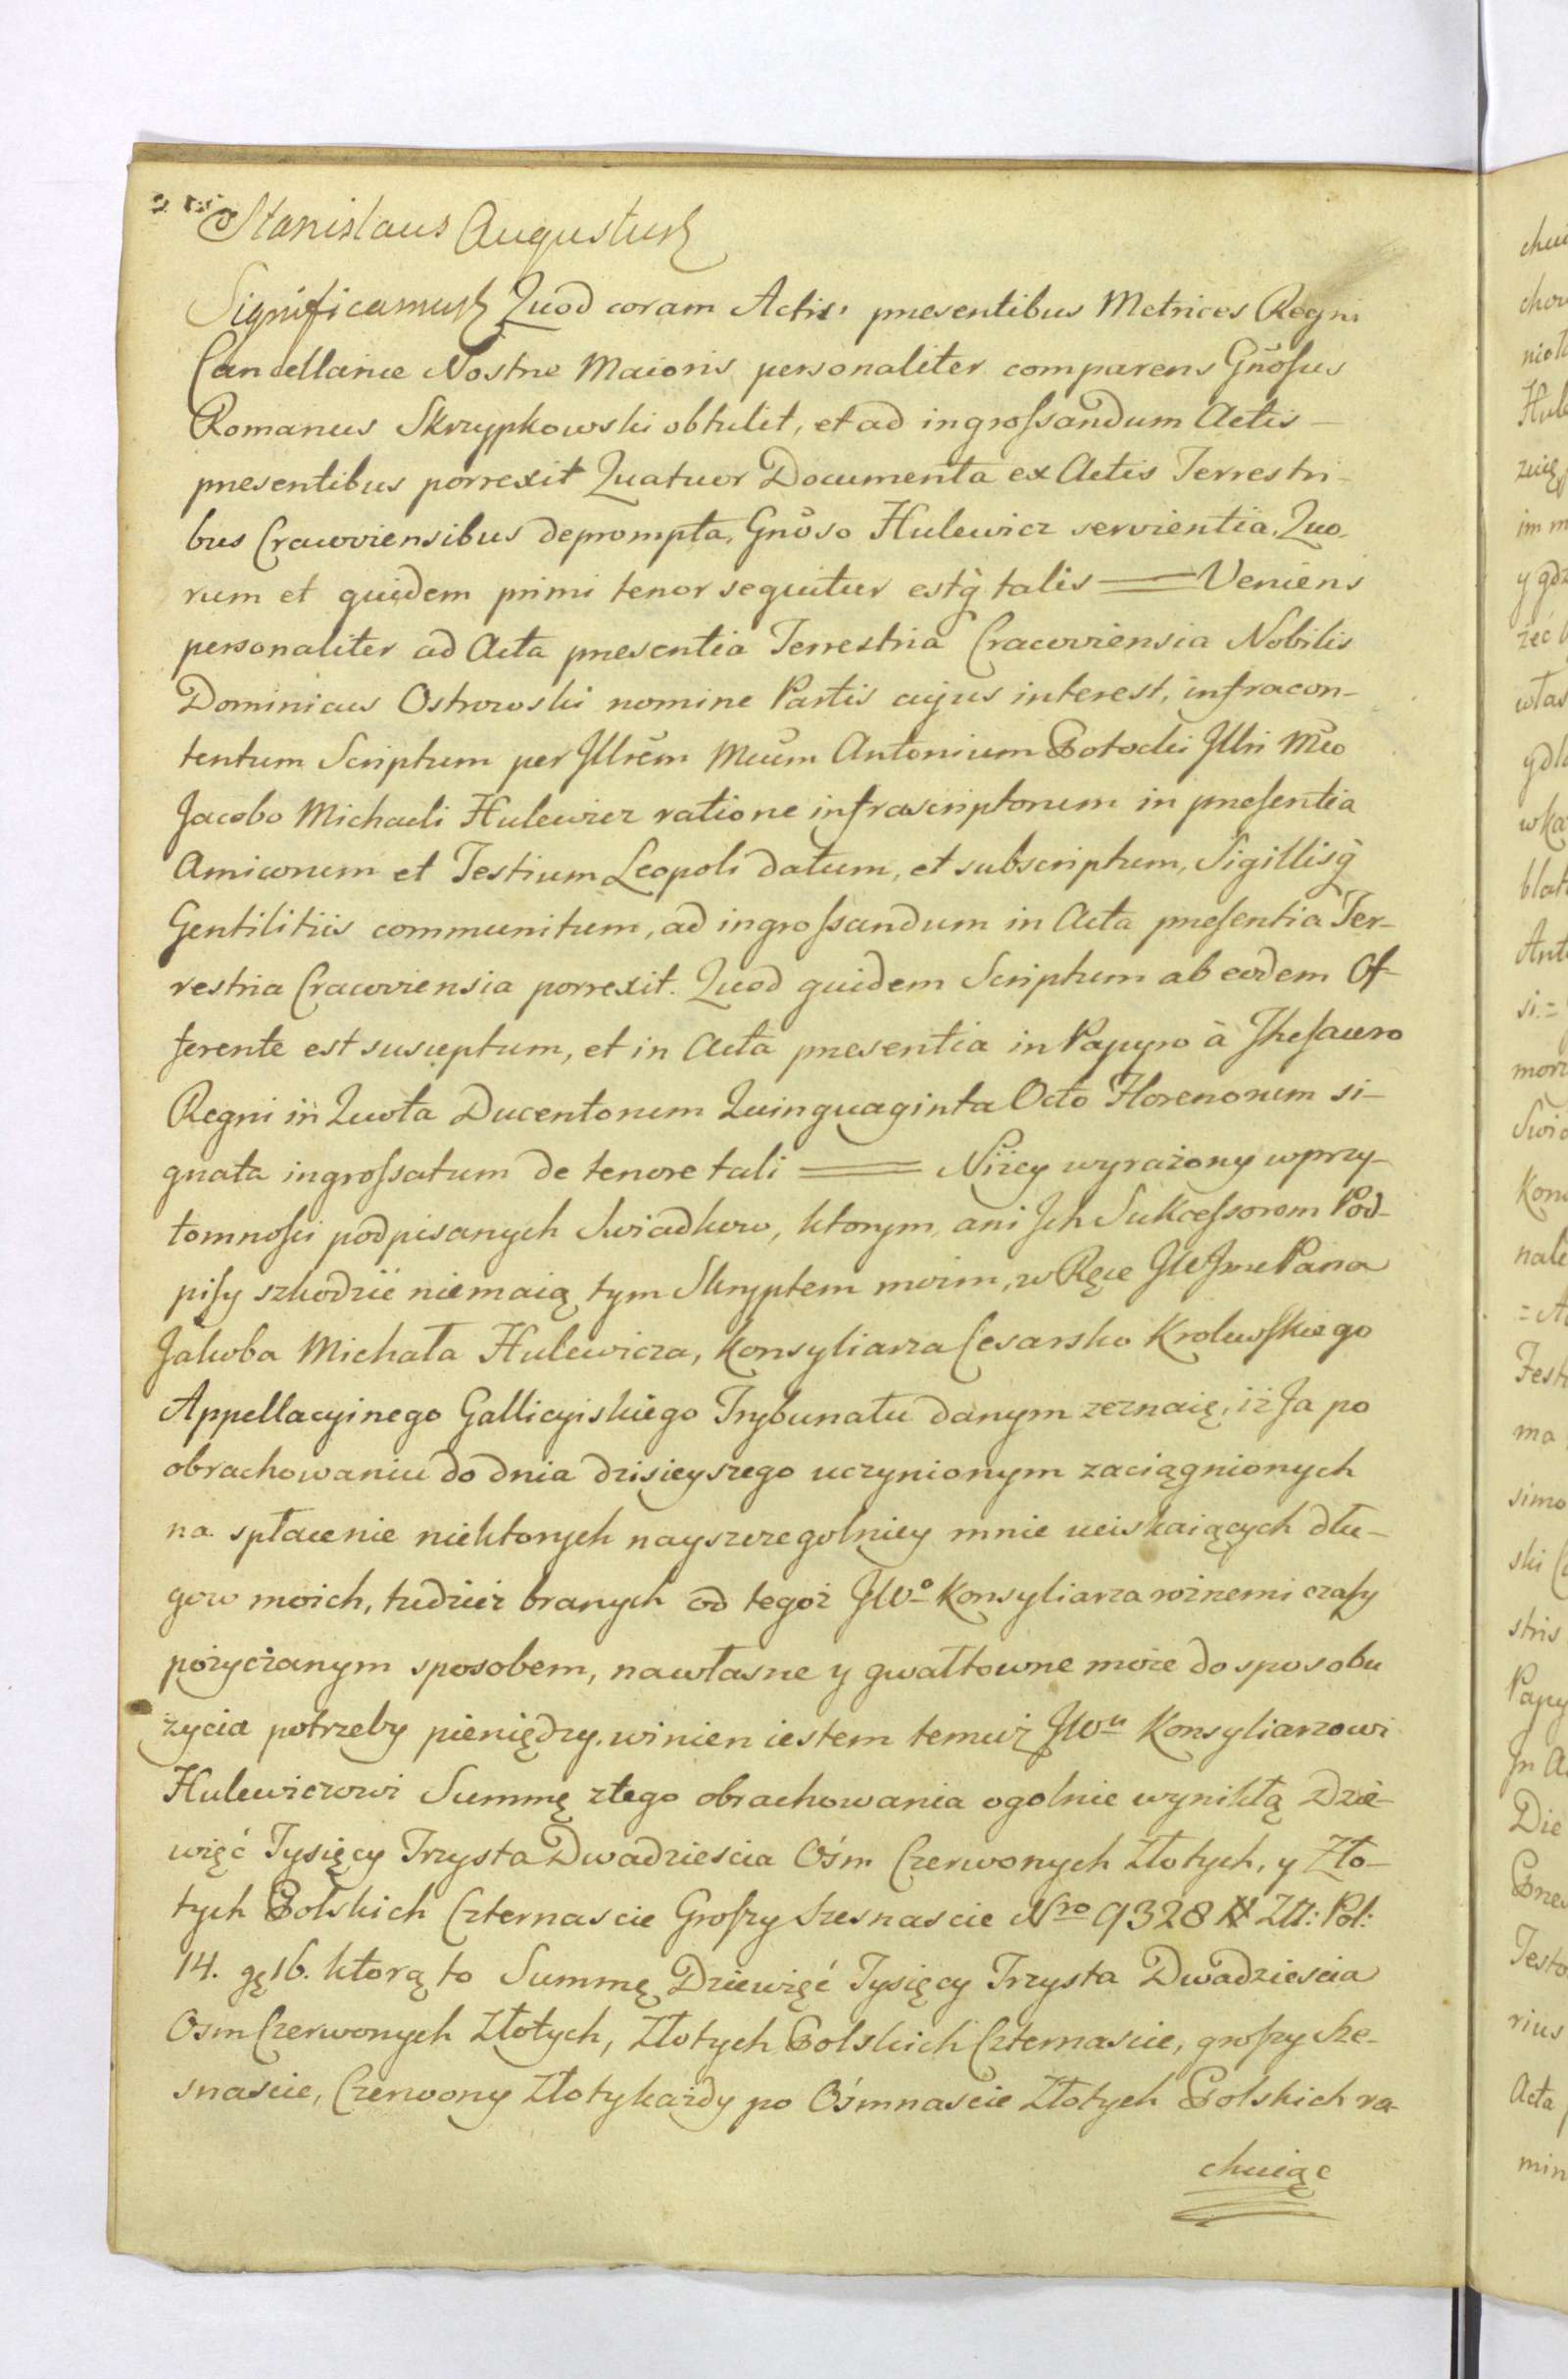 Stanislaus Augustus
Significamus Quod coram Actis presentibus Metrices Regni
Cancellariæ Nostræ Maioris personaliter comparens Gnosus
Romanus Skrzypkowski obtulit, et ad ingrossandum Actis —
presentibus porrexit Quatuor Documenta ex Actis Terrestri-
bus Cracoviensibus deprompta, Gnoso Hulewicz servientia, Quo-
rum et quidem primi tenor sequitur estq talis = Veniens
personaliter ad Acta presentia Terrestria Cracoviensia Nobilis
Dominicus Ostrowski nomine Partis cujus interest, infracon-
tentum Scriptum per Jllrem Mcum Antonium Potocki Jllri Mco
Jacobo Michaeli Hulewicz ratione infrascriptorum in presentia
Amicorum et Testium Leopoli datum, et subscriptum, Sigillisq
Gentilitiis communitum, ad ingrossandum in Acta presentia Ter-
restria Cracoviensia porrexit. Quod quidem Scriptum ab eodem Of-
ferente est susceptum, et in Acta presentia in Papyro à Thesauro
Regni in Quota Ducentorum Quinquaginta Octo Florenorum si-
gnata ingrossatum de tenore tali = Niżey wyrażony w przy-
tomności podpisanych Swiadkow, ktorym, ani Jch Sukcessorom Pod-
pisy szkodzić niemaią tym Skryptem moim, w Ręce JWJmcPana
Jakoba Michała Hulewicza, Konsyliarza Cesarsko Krolewskiego
Appellacyinego Gallicyiskiego Trybunału danym zeznaię, iż Ja po
obrachowaniu do dnia dzisieyszego uczynionym zaciągnionych
na spłacenie niektorych nayszczegolniey mnie uciskaiących dłu-
gow moich, tudzież branych od tegoż JWo Konsyliarza rożnemi czasy
pożyczanym sposobem, na własne y gwałtowne może do sposobu
życia potrzeby pieniędzy, winien iestem temuż JWu Konsyliarzowi
Hulewiczowi Summę z tego obrachowania ogolnie wynikłą Dzie-
więć Tysięcy Trzysta Dwadziescia Ośm Czerwonych Złotych, y Zło-
tych Polskich Czternascie Groszy szesnascie Nro 9328 # Złł: Pol:
14. gę 16. ktorą to Summę Dziewięć Tysięcy Trzysta Dwadziescia
Osm Czerwonych Złotych, Złotych Polskich Czternascie, groszy sze-
snascie, Czerwony Złoty każdy po Ośmnascie Złotych Polskich ra-
chuiąc